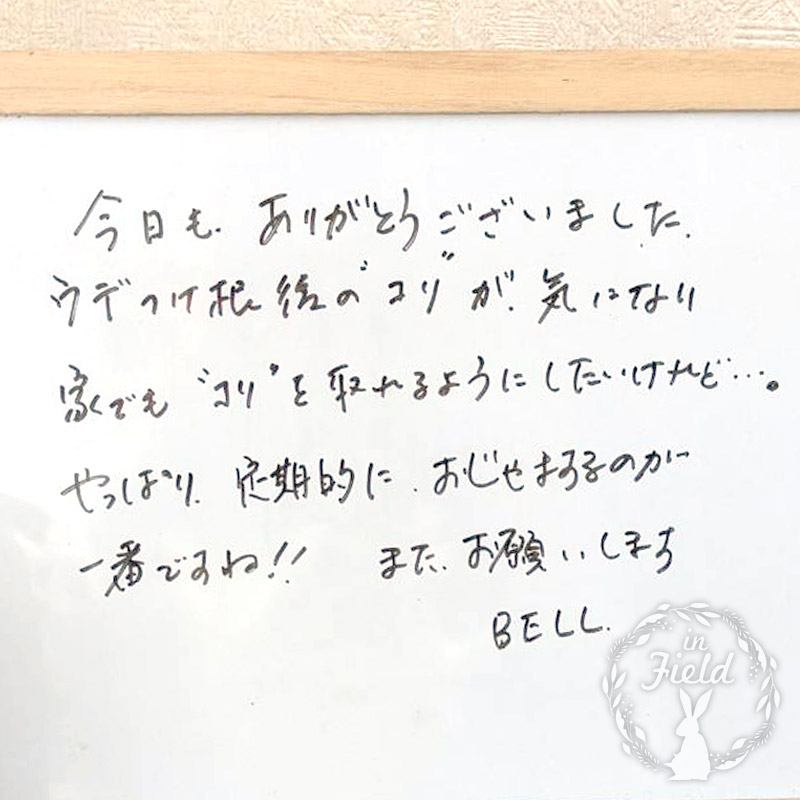 今日も、ありがとうございました。
ウデつけ根後の"コリ"が、気になり
家でも"コリ"を取れるようにしたいけれど…。
やっぱり、定期的に、おじゃまするのが
一番ですね!! また、お願いします
BELL.
in
Field